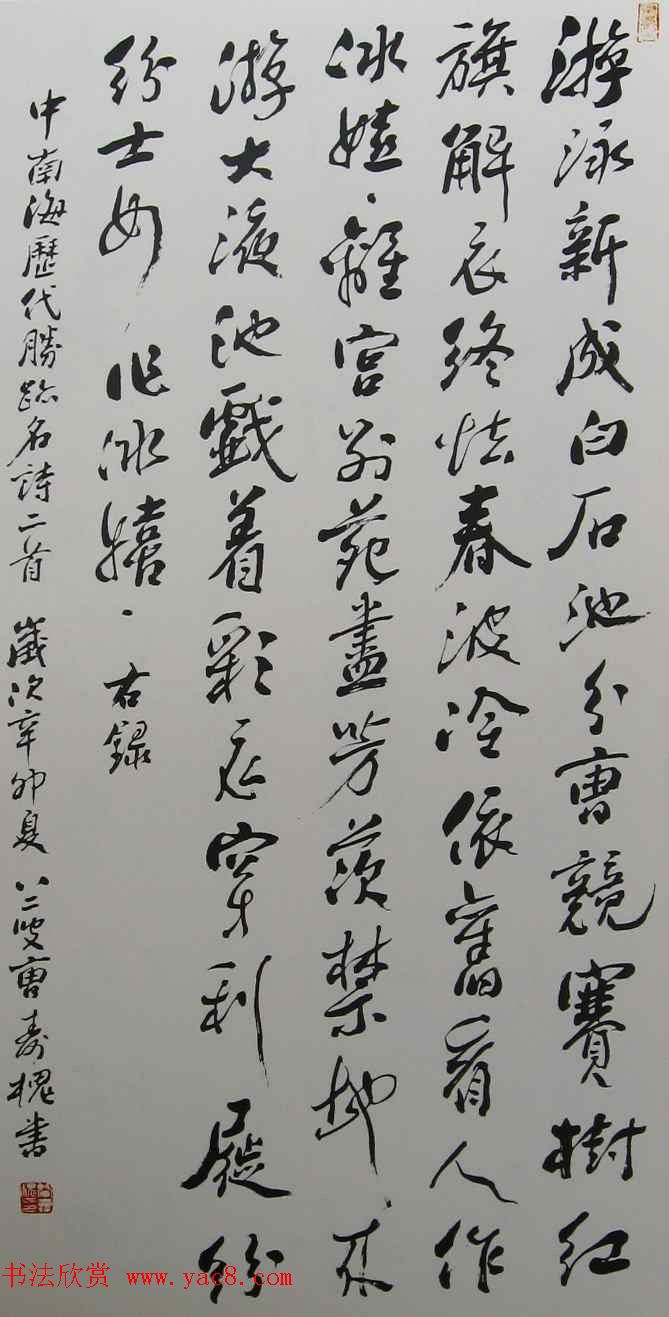 游泳新成白石池分曹競賽樹紅
旗解衣終怯春波冷依舊看人作
冰嬉離宮別苑盡芳茨禁地來
游大液池戲着彩衣穿利屐紛
紛士女作冰嬉右錄
中南海歷代勝跡名詩二首 歲次辛卯夏 八二叟曹壽槐書
书法欣赏 www.yac8.com